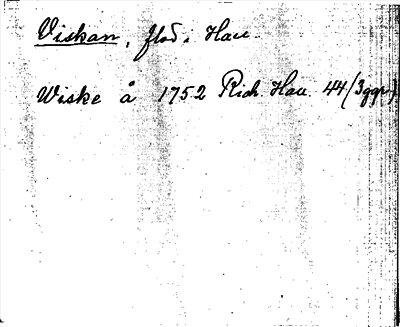 Viskan, flod, Hall.
Wiske å 1752 Rich. Hall. 44 (3 ggr)